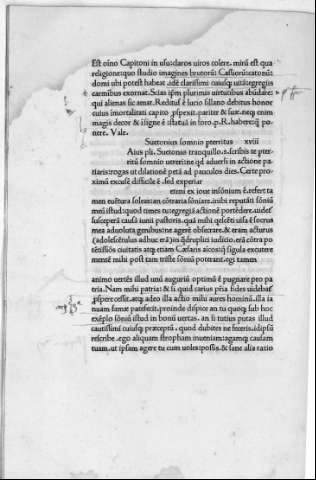 Est oīno Capitoni in usu: claros uiros colere. mirū est qua
religione: quo studio imagines brutorū: Cassiorū: catonū:
domi ubi potest habeat .idē clarissimi cuiusq; uitā egregiis
carmībus exornat. Scias ipsm plurimis uirtutibus abūdare:
qui alienas sic amat. Reditus ē lucio sillano debitus honor
cuius īmortalitati capito pspexit. pariter & suæ. neq; enim
magis decor & īsigne ē statuā in foro. p. R. habere: q̄
ponere. Vale.
Suetonius somnio perritus xviii
Aius pli. Suetonio tranquillo. s. scribis te per-
ritū somnio uereri: ne qd aduersi in actione pa-
tiaris: rogas ut dilationē petā ad pauculos dies. Certe pro-
ximū excusē difficile ē .sed experiar
etenī ex ioue isōnium ē. refert ta
men euētura soleas an cōtraria sōniare. mihi reputāti sōniū
meū istud: quod times tu egregiā actionē portēdere uidet
susceperā causā iunii pastoris. quā mihi qescēti uisa ē socrus
mea aduoluta genibus: ne agerē obsecrare. & eram acturus
(adolescētulus adhuc erā) in q̄druplici iudicio. erā cōtra po
tētissios ciuitatis atq; etiam Cæsaris amicos: q̄ singula excutere
mentē mihi post tam triste sōniū poterant. egi tamen

animo uertēs illud unū auguriū optimū ē pugnare pro pa
tria. Nam mihi patria: & si quid carius pria fides uidebat
pspere cessit. atq; adeo illa actio mihi aures hominū. illa ia
nuam famæ patefecit. proinde dispice an tu quoq; sub hoc
exēplo sōniū istud in bonū uertas. an si tutius putas illud
cautissimi cuiusq; præceptū. quod dubites ne feceris. id ipsū
rescribe. ego aliquam stropham inueniam: agamq; causam
tuam. ut ipsam agere tu cum uoles: possis. & sane alia ratio